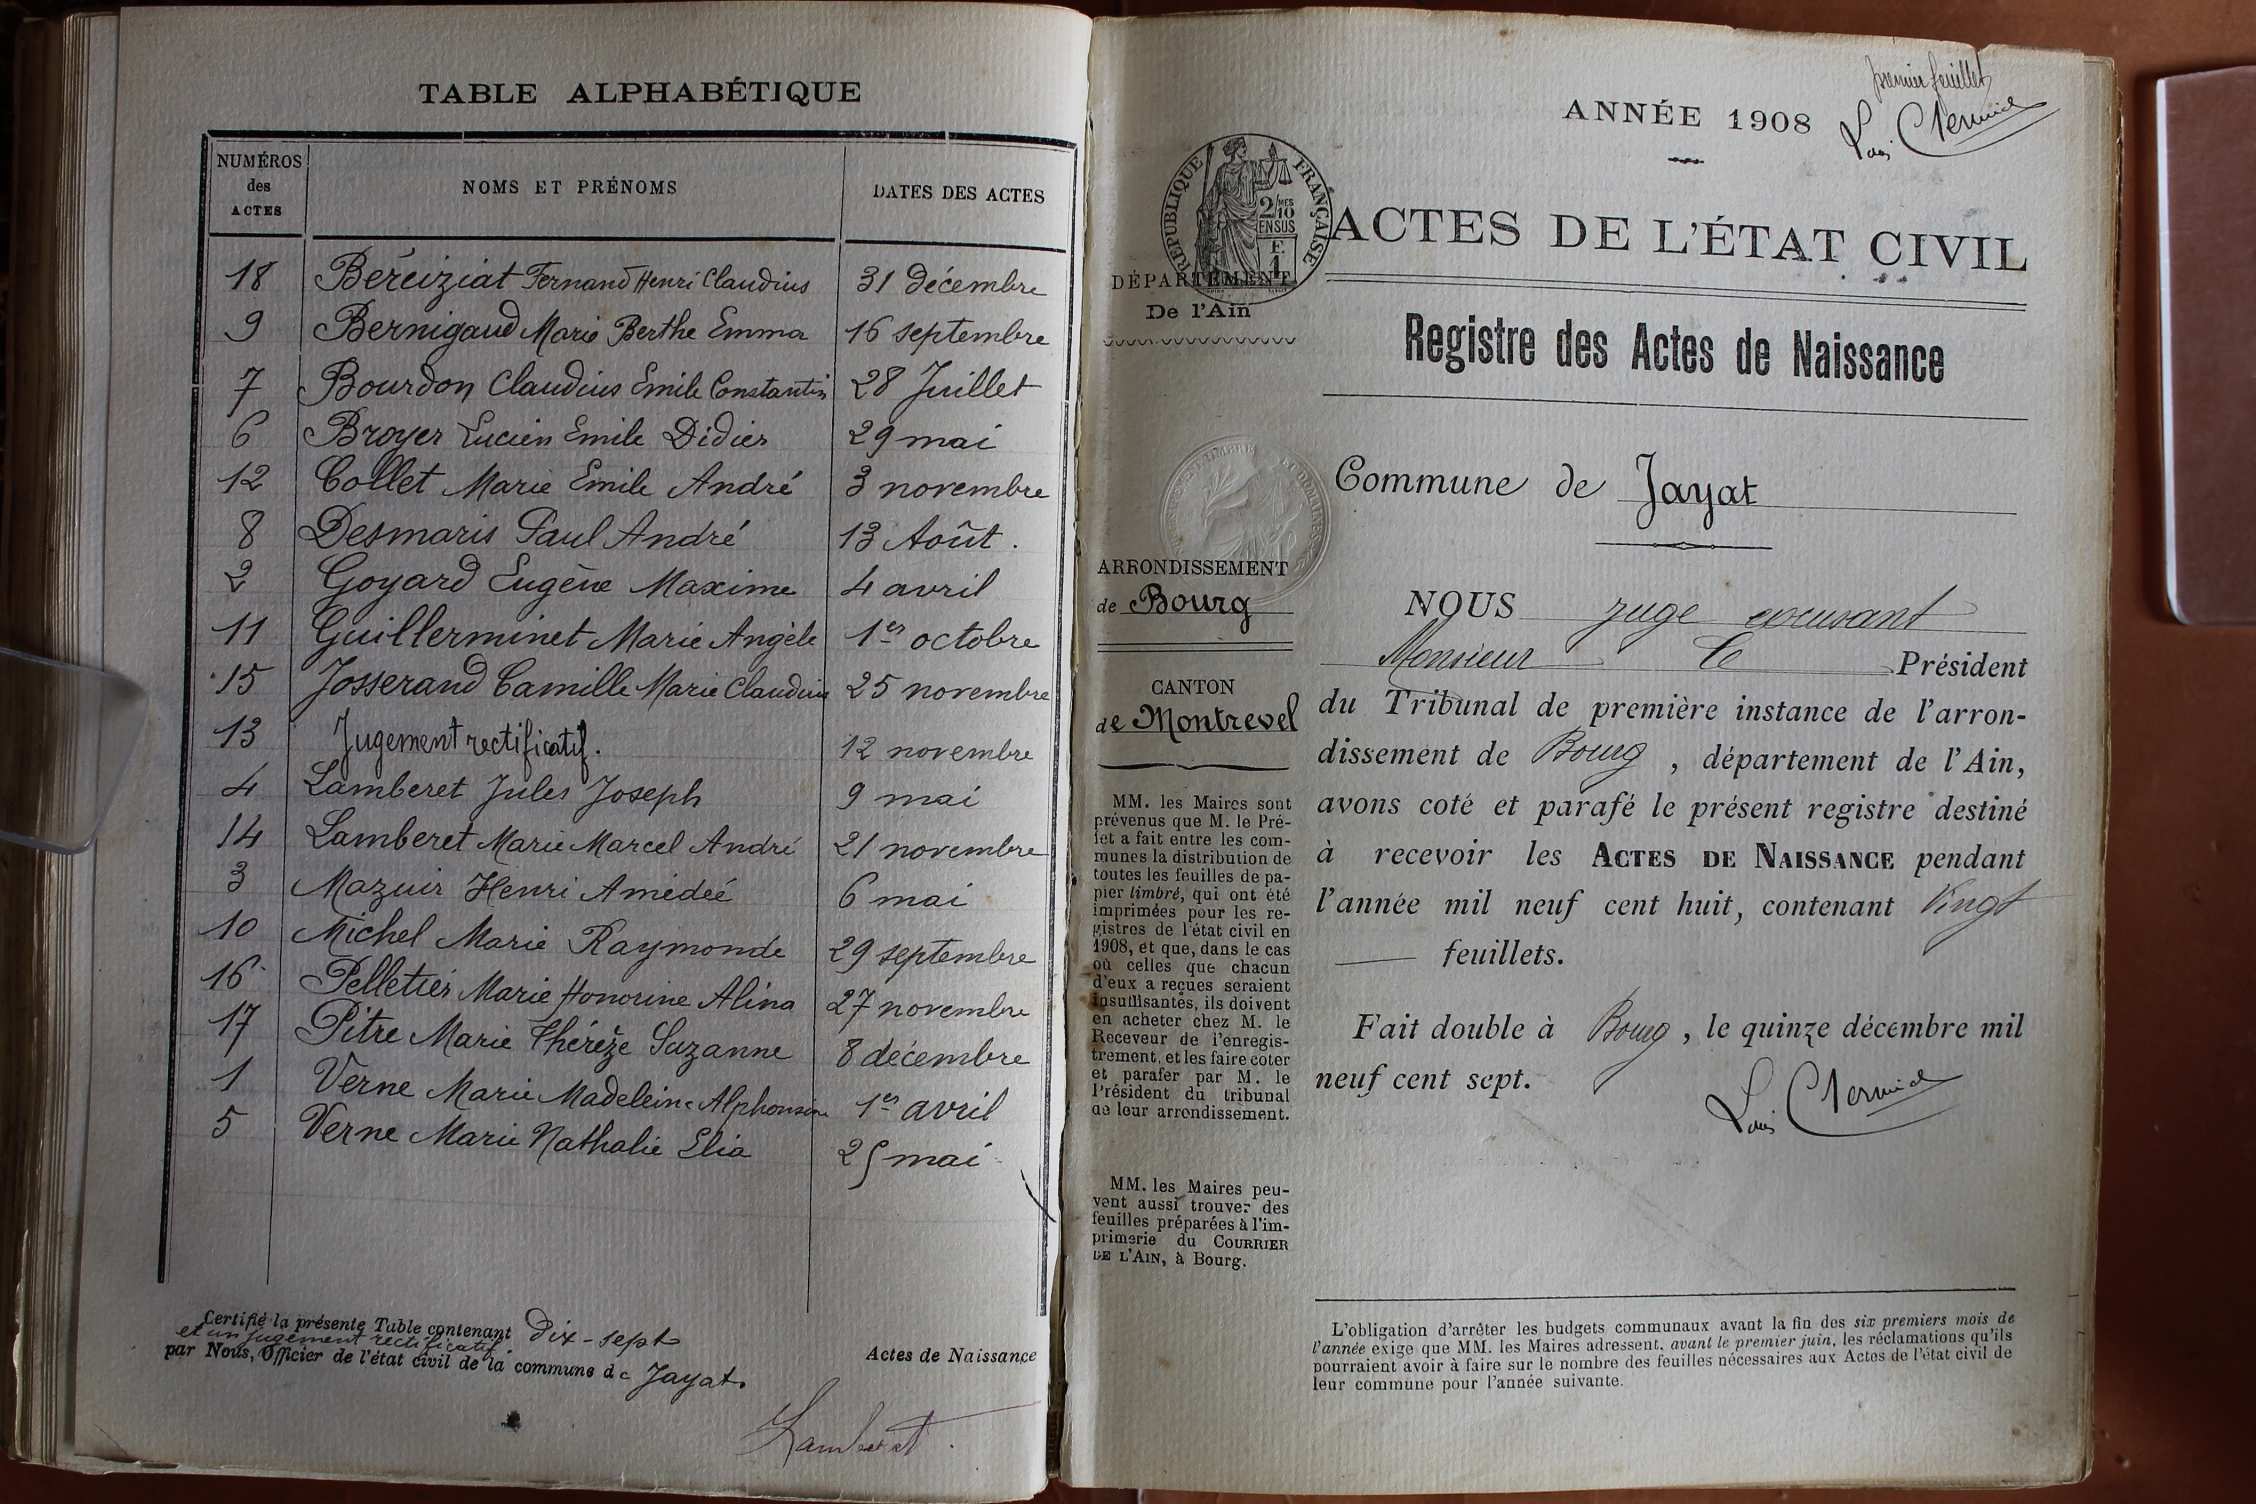 TABLE ALPHABÉTIQUE
NUMÉROS des ACTES
NOMS ET PRÉNOMS
DATES DES ACTES
18 Béréiziat Fernand Henri Claudius 31 décembre
9 Bernigaud Marie Berthe Emma 16 septembre
7 Bourdon Claudius Emile Constantin 28 Juillet
6 Broyer Lucien Emile Didier 29 mai
12 Collet Marie Emile André 3 novembre
8 Desmaris Paul André 13 Août.
2 Goyard Eugène Maxime 4 avril
11 Guillerminet Marie Angèle 1er octobre
15 Josserand Camille Marie Claudius 25 novembre
13 Jugement rectificatif. 12 novembre
4 Lamberet Jules Joseph 9 mai
14 Lamberet Marie Marcel André 21 novembre
3 Mazuir Henri Amédée 6 mai
10 Michel Marie Raymonde 29 septembre
16 Pelletier Marie Honorine Alina 27 novembre
17 Pitre Marie Thérèze Suzanne 8 décembre
1 Verne Marie Madeleine Alphonsine 1er avril
5 Verne Marie Nathalie Elia 25 mai
Certifié la présente Table contenant Dix-sept
et un jugement rectificatif.
Actes de Naissance
par Nous, Officier de l'état civil de la commune de Jayat.
Lamberet
premier feuillet
ANNÉE 1908
RÉPUBLIQUE FRANÇAISE
2/10 MES
EN SUS
F
1
ACTES DE L'ÉTAT CIVIL
DÉPARTEMENT
De l'Ain
Registre des Actes de Naissance
Commune de Jayat
ARRONDISSEMENT
de Bourg
CANTON
de Montrevel
MM. les Maires sont
prévenus que M. le Pré-
fet a fait entre les com-
munes la distribution de
toutes les feuilles de pa-
pier timbré, qui ont été
imprimées pour les re-
gistres de l'état civil en
1908, et que, dans le cas
où celles que chacun
d'eux a reçues seraient
insuffisantes, ils doivent
en acheter chez M. le
Receveur de l'enregis-
trement, et les faire coter
et parafer par M. le
Président du tribunal
de leur arrondissement.
MM. les Maires peu-
vent aussi trouver des
feuilles préparées à l'im-
primerie du COURRIER
DE L'AIN, à Bourg.
NOUS juge excusant
Monsieur le Président
du Tribunal de première instance de l'arron-
dissement de Bourg, département de l'Ain,
avons coté et parafé le présent registre destiné
à recevoir les ACTES DE NAISSANCE pendant
l'année mil neuf cent huit, contenant Vingt
feuillets.
Fait double à Bourg, le quinze décembre mil
neuf cent sept.
L'obligation d'arrêter les budgets communaux avant la fin des six premiers mois de
l'année exige que MM. les Maires adressent, avant le premier juin, les réclamations qu'ils
pourraient avoir à faire sur le nombre des feuilles nécessaires aux Actes de l'état civil de
leur commune pour l'année suivante.